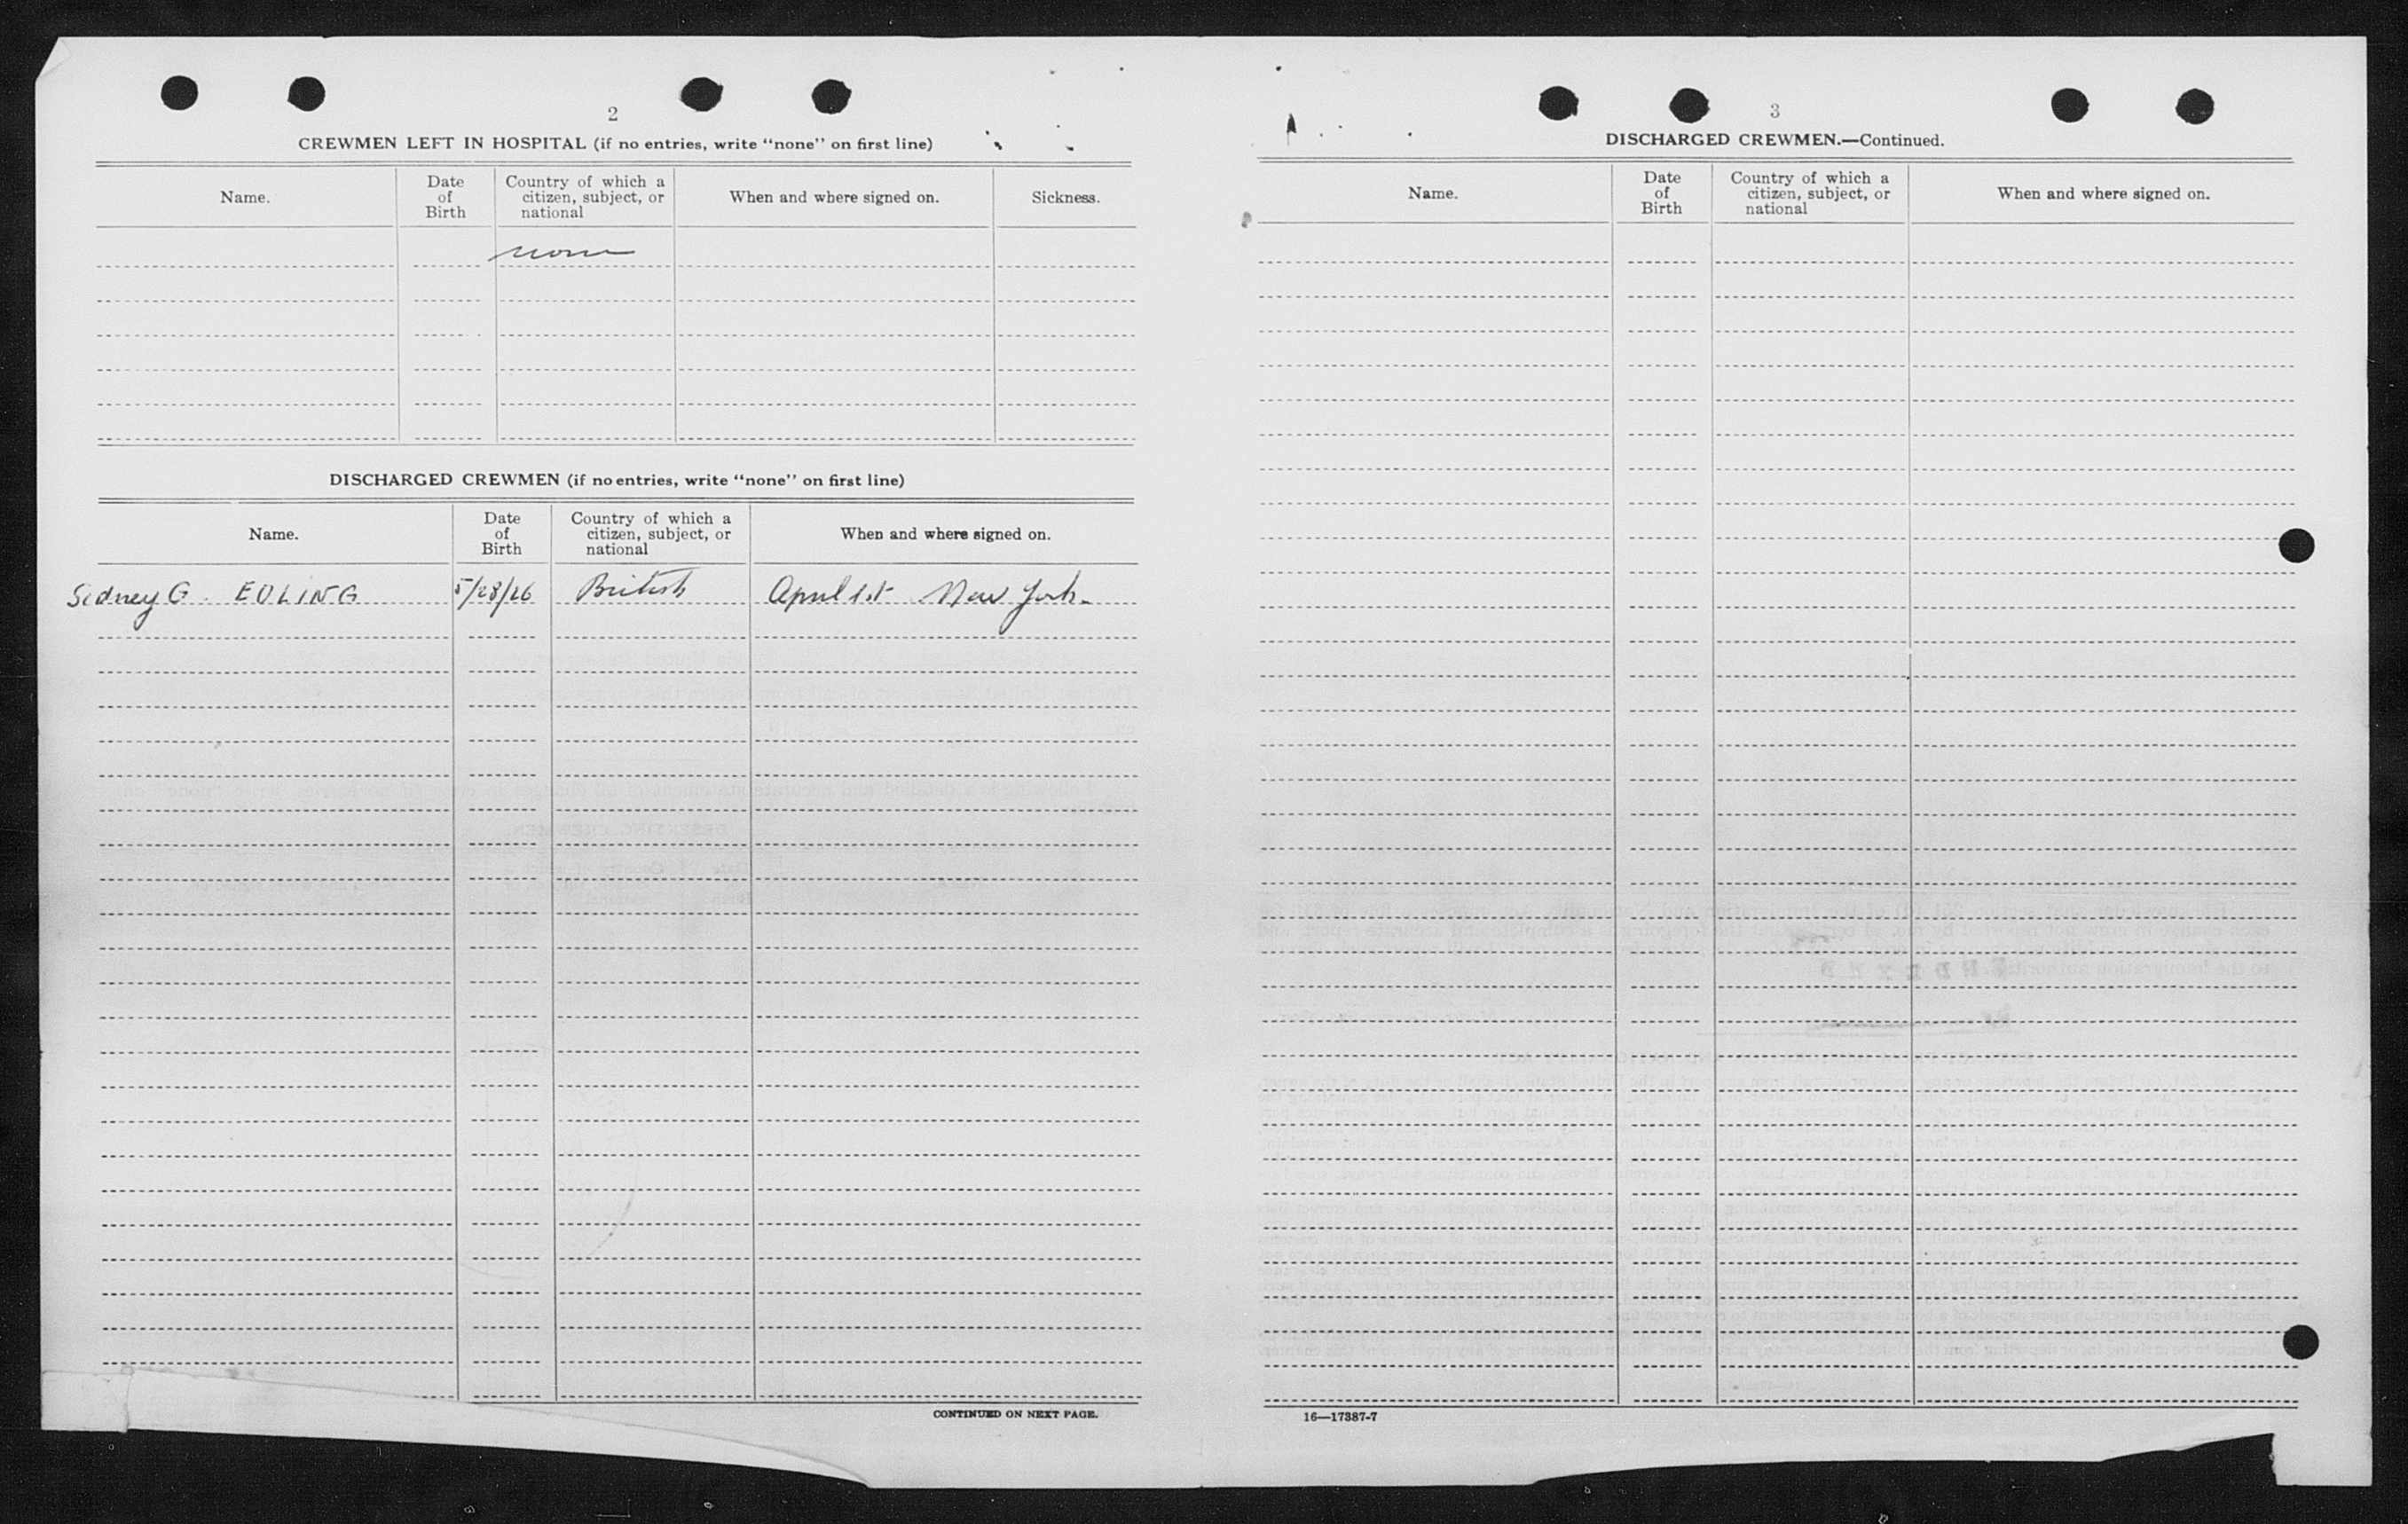 2
CREWMEN LEFT IN HOSPITAL (if no entries, write "none" on first line)
Name.
Date of Birth
Country of which a citizen, subject, or national
When and where signed on.
Sickness.
none
DISCHARGED CREWMEN (if no entries, write "none" on first line)
Name.
Date of Birth
Country of which a citizen, subject, or national
When and where signed on.
Sidney G. EDLING 5/28/26 British April 1st New York.
CONTINUED ON NEXT PAGE.
3
DISCHARGED CREWMEN.—Continued.
Name.
Date of Birth
Country of which a citizen, subject, or national
When and where signed on.
16—17387-7